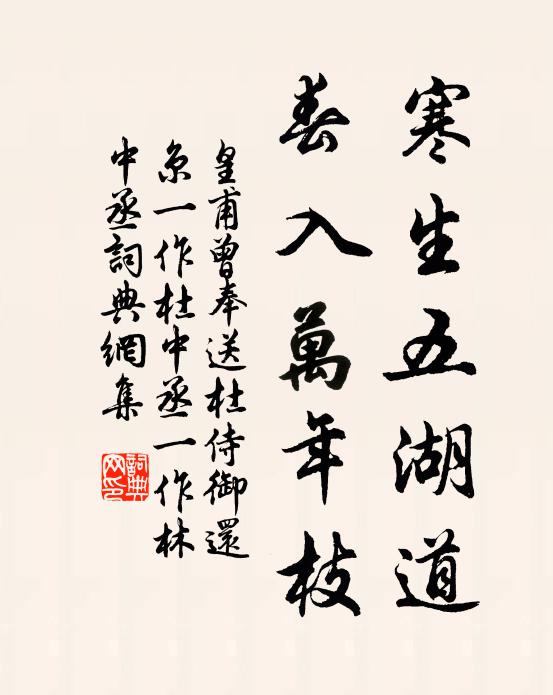 寒生五湖道
春入萬年枝
皇甫曾奉送杜侍御還
京一作杜中丞一作林
中丞詞典網集
詞典
网印